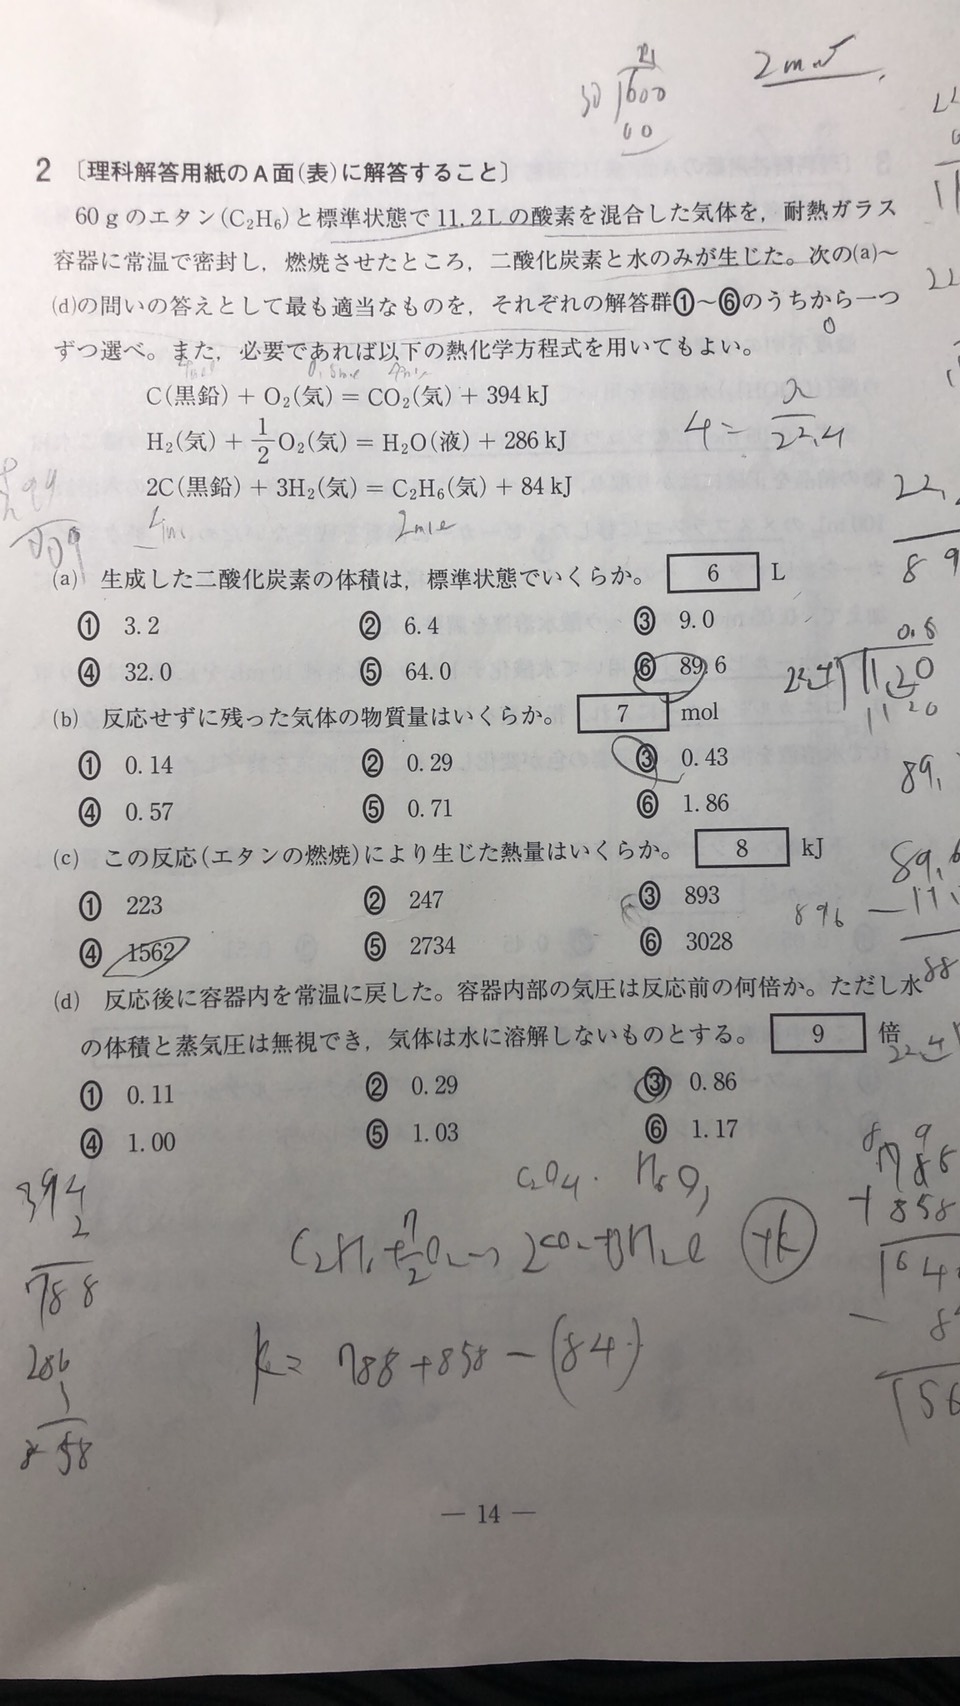 30 600
00
2 〔理科解答用紙のA面(表)に解答すること〕
60gのエタン(C₂H₆)と標準状態で11.2Lの酸素を混合した気体を,耐熱ガラス
容器に常温で密封し,燃焼させたところ,二酸化炭素と水のみが生じた。次の(a)〜
(d)の問いの答えとして最も適当なものを,それぞれの解答群①〜⑥のうちから一つ
ずつ選べ。また,必要であれば以下の熱化学方程式を用いてもよい。
C(黒鉛) + O₂(気) = CO₂(気) + 394 kJ
H₂(気) + 1/2 O₂(気) = H₂O(液) + 286 kJ
2C(黒鉛) + 3H₂(気) = C₂H₆(気) + 84 kJ
(a) 生成した二酸化炭素の体積は,標準状態でいくらか。 6 L
① 3.2 ② 6.4 ③ 9.0
④ 32.0 ⑤ 64.0 ⑥ 89.6
22.4 11.20
(b) 反応せずに残った気体の物質量はいくらか。 7 mol
① 0.14 ② 0.29 ③ 0.43
④ 0.57 ⑤ 0.71 ⑥ 1.86
(c) この反応(エタンの燃焼)により生じた熱量はいくらか。 8 kJ
① 223 ② 247 ③ 893
896
④ 1562 ⑤ 2734 ⑥ 3028
(d) 反応後に容器内を常温に戻した。容器内部の気圧は反応前の何倍か。ただし水
の体積と蒸気圧は無視でき,気体は水に溶解しないものとする。 9 倍
① 0.11 ② 0.29 ③ 0.86
④ 1.00 ⑤ 1.03 ⑥ 1.17
394
2
788
286
858
k= 788+858-(84)
— 14 —